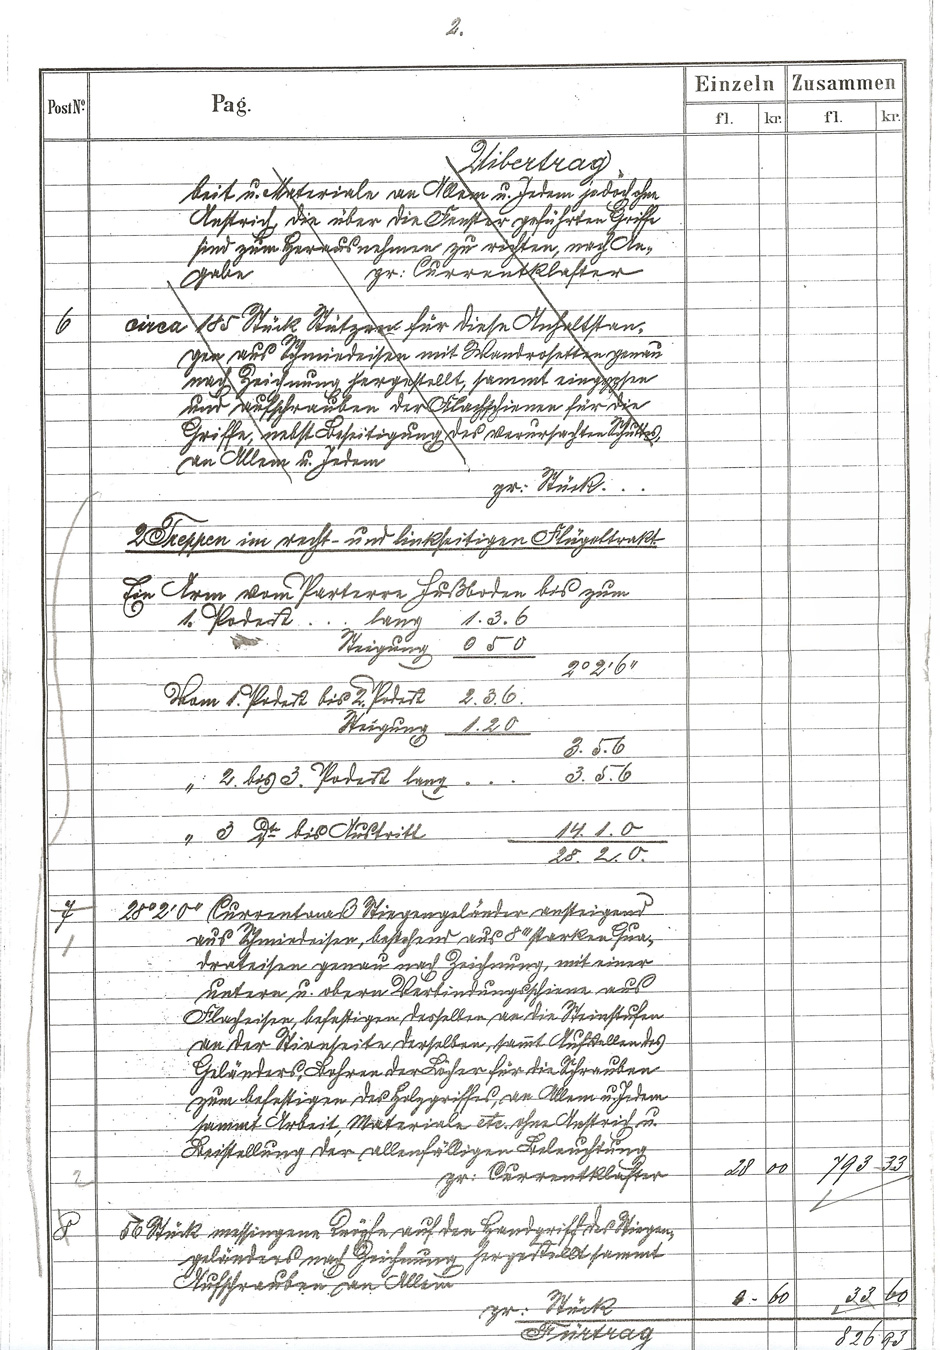 2.
Post No. Pag. Einzeln Zusammen
fl. kr. fl. kr.
Uibertrag
beit u. Materiale an Allem u. Jedem jedoch ohne
Anstrich, die über die Fenster geführten Griffe
sind zum Herausnehmen zu richten, nach An-
gabe pr: Currentklafter
6 circa 185 Stück Stützen für diese Anhaltstan-
gen aus Schmiedeisen mit Wandrosetten genau
nach Zeichnung hergestellt, sammt eingypsen
und aufschrauben der Flachschienen für die
Griffe, nebst Beseitigung des verursachten Schuttes,
an Allem u. Jedem
pr: Stück . . .
2 Treppen im recht- und linkseitigen Flügeltrakt
Ein Arm vom Parterre Fußboden bis zum
1. Podest . . . lang 1. 3. 6
Steigung 0 5 0
2° 2' 6"
Vom 1. Podest bis 2. Podest 2. 3. 6.
Steigung 1. 2 0
3. 5. 6
" 2. bis 3. Podest lang . . . 3. 5. 6
" 3 Dto bis Austritt 14. 1. 0
28. 2. 0.
7 28° 2' 0" Currentmaß Stiegengeländer ansteigend
1 aus Schmiedeisen, bestehend aus 8''' starken Qua-
drateisen genau nach Zeichnung, mit einer
untern u. obern Verbindungsschiene aus
Flacheisen, befestigen desselben an die Steinstufen
an der Stirnseite derselben, sammt Aufstellen des
Geländers, Bohren der Löcher für die Schrauben
zum befestigen des Holzgriffes, an Allem u. Jedem
sammt Arbeit, Materiale etc. ohne Anstrich u.
Beistellung der allenfälligen Beleuchtung
2 pr: Currentklafter 28 00 793 33
8 56 Stück messingene Knöpfe auf den Handgriff des Stiegen-
geländers nach Zeichnung hergestellt sammt
Aufschrauben an Allem
pr: Stück - 60 33 60
Fürtrag 826 93